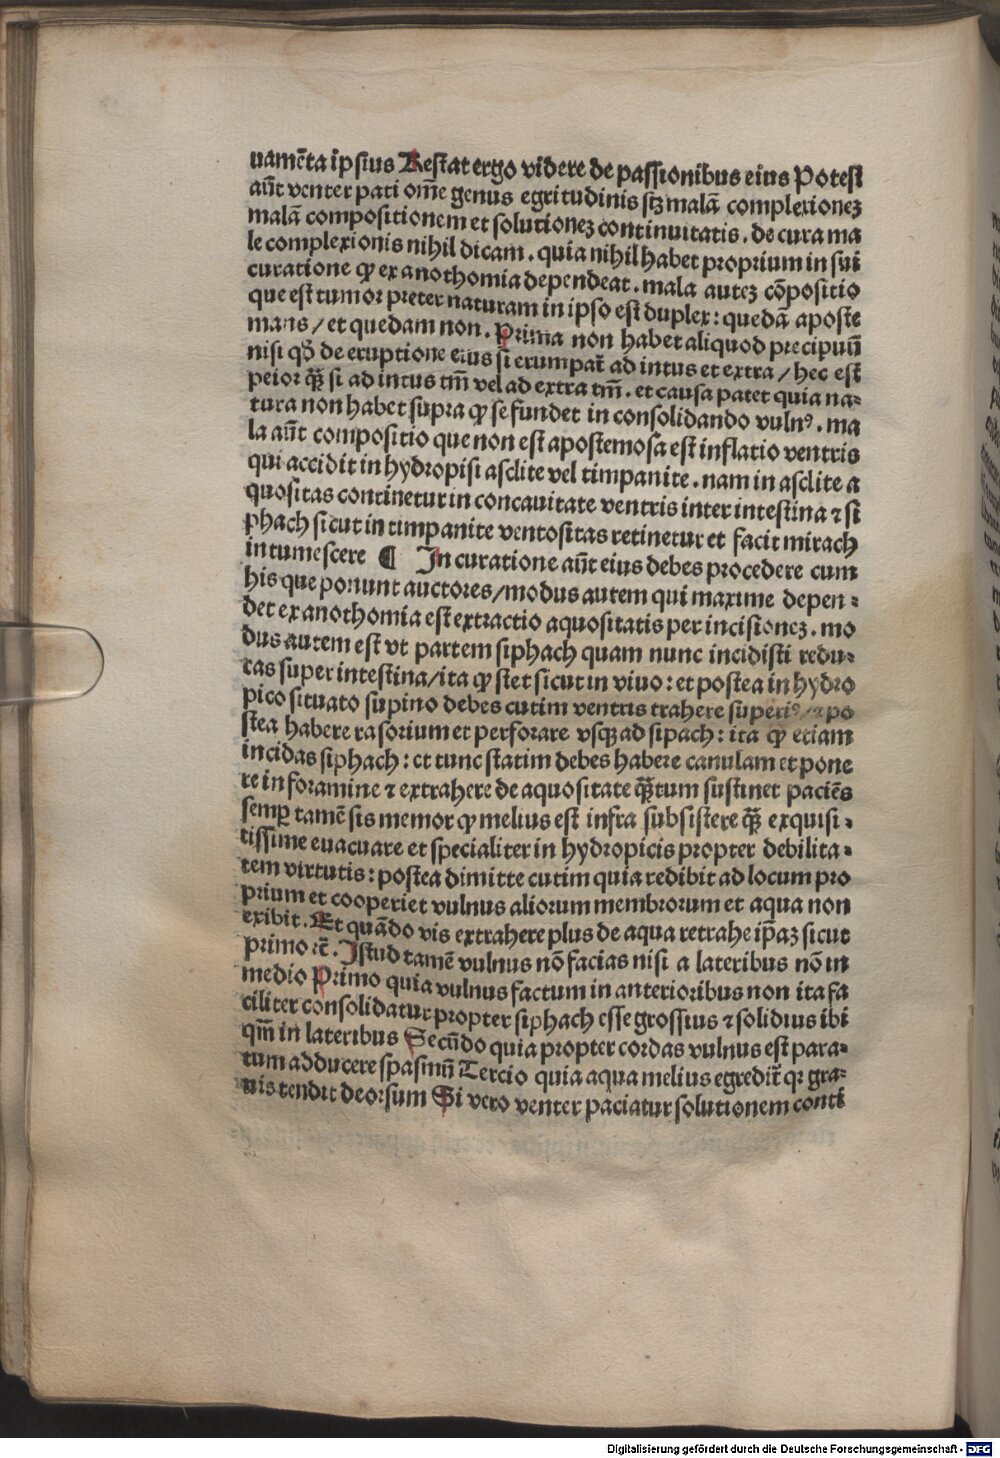 uamēta ip̄sius Restat ergo videre de passionibus eius Potest
aūt venter pati om̄e genus egritudinis sꝫ malā complexionez
malā compositionem et solutionez continuitatis . de cura ma
le complexionis nihil dicam . quia nihil habet proprium in sui
curatione ꝙ ex anothomia dependeat . mala autez cōpositio
que est tumor preter naturam in ipso est duplex : quedā aposte
mans / et quedam non . Prima non habet aliquod precipuū
nisi qđ de eruptione eius si erumpat̄ ad intus et extra / hec est
peior q̄ꝫ si ad intus tm̄ vel ad extra tm̄ . et causa patet quia na⸗
tura non habet supra ꝙ se fundet in consolidando vulnꝰ . ma
la aūt compositio que non est apostemosa est inflatio ventris
qui accidit in hydropisi asclite vel timpanite . nam in asclite a
quositas continetur in concauitate ventris inter intestina ⁊ si
phach sicut in timpanite ventositas retinetur et facit mirach
intumescere ¶ In curatione aūt eius debes procedere cum
his que ponunt auctores / modus autem qui maxime depen⸗
det ex anothomia est extractio aquositatis per incisionez . mo
dus autem est vt partem siphach quam nunc incidisti redu⸗
cas super intestina / ita ꝙ stet sicut in viuo : et postea in hydro
pico situato supino debes cutim ventris trahere superiꝰ / ⁊ po
stea habere rasorium et perforare vsqꝫ ad sipach : ita ꝙ etiam
incidas siphach : et tunc statim debes habere canulam et pone
re in foramine ⁊ extrahere de aquositate q̄ꝫtum sustinet paciēs
semꝑ tamē sis memor ꝙ melius est infra subsistere q̄ꝫ exquisi⸗
tissime euacuare et specialiter in hydropicis propter debilita⸗
tem virtutis : postea dimitte cutim quia redibit ad locum pro
prium et cooperiet vulnus aliorum membrorum et aqua non
exibit . Et quādo vis extrahere plus de aqua retrahe ip̄az sicut
primo ⁊c̄ . Istud tamē vulnus nō facias nisi a lateribus nō in
medio Primo quia vulnus factum in anterioribus non ita fa
ciliter consolidatur propter siphach esse grossius ⁊ solidius ibi
qm̄ in lateribus Secūdo quia propter cordas vulnus est para⸗
tum adducere spasmū Tercio quia aqua melius egredit̄ qꝛ gra⸗
uis tendit deorsum Si vero venter paciatur solutionem conti
Digitalisierung gefördert durch die Deutsche Forschungsgemeinschaft - DFG